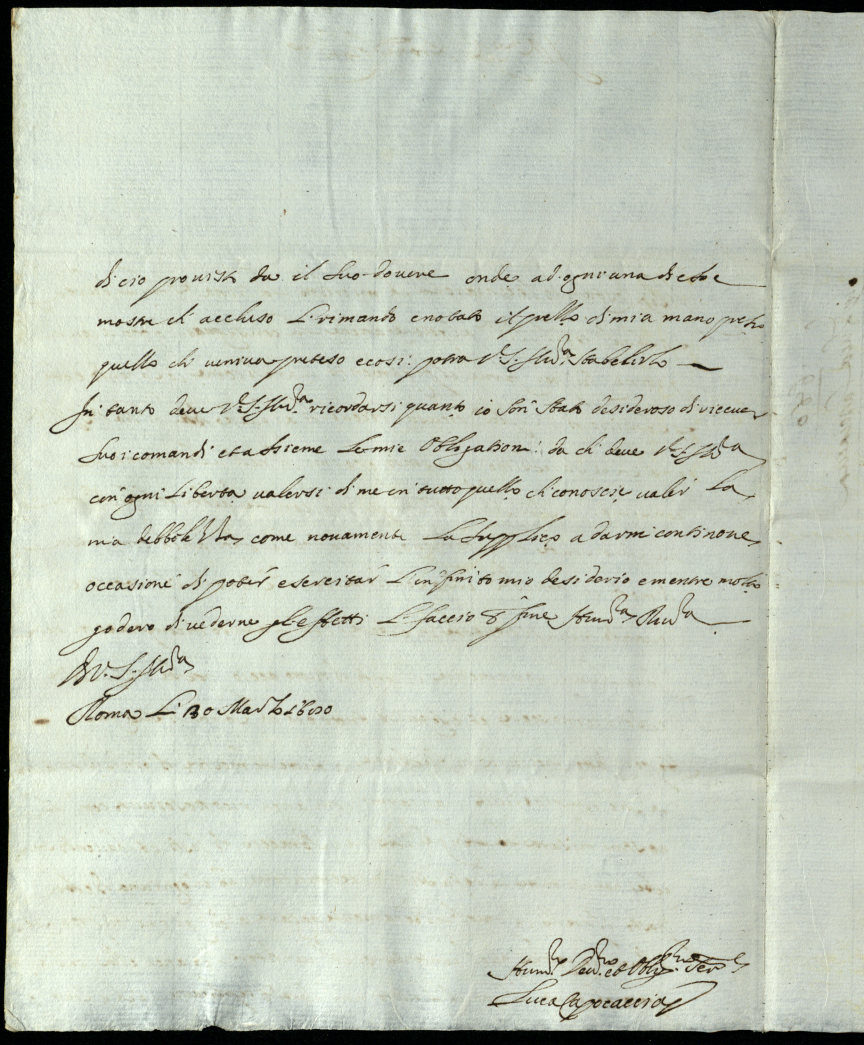 di cio provista da il suo dovere onde ad ogni una di esse
mostre ch accluso Le rimando e notato il di mia mano
quello ch veniva preteso e cosi potra V.S. Ill.ma stabelirlo
In tanto deve V.S. Ill.ma ricordarsi quanto io son stato desideroso di ricever
suoi comandi et assieme le mie Obligationi da ch deve V.S. Ill.ma
con ogni Liberta valersi di me in tutto quello ch conoscie valer La
mia debbolezza come novamente La supplico a darmi continove
occasione di poter esercitar L'infinito mio desiderio e mentre
godero di vederne gl'effetti Le faccio fine Hum.ma Riv.a
D V.S. Ill.ma
Roma Li 30 Marzo
Hum.mo Dev.mo et Oblig.mo Ser.e
Luca Capocaccia